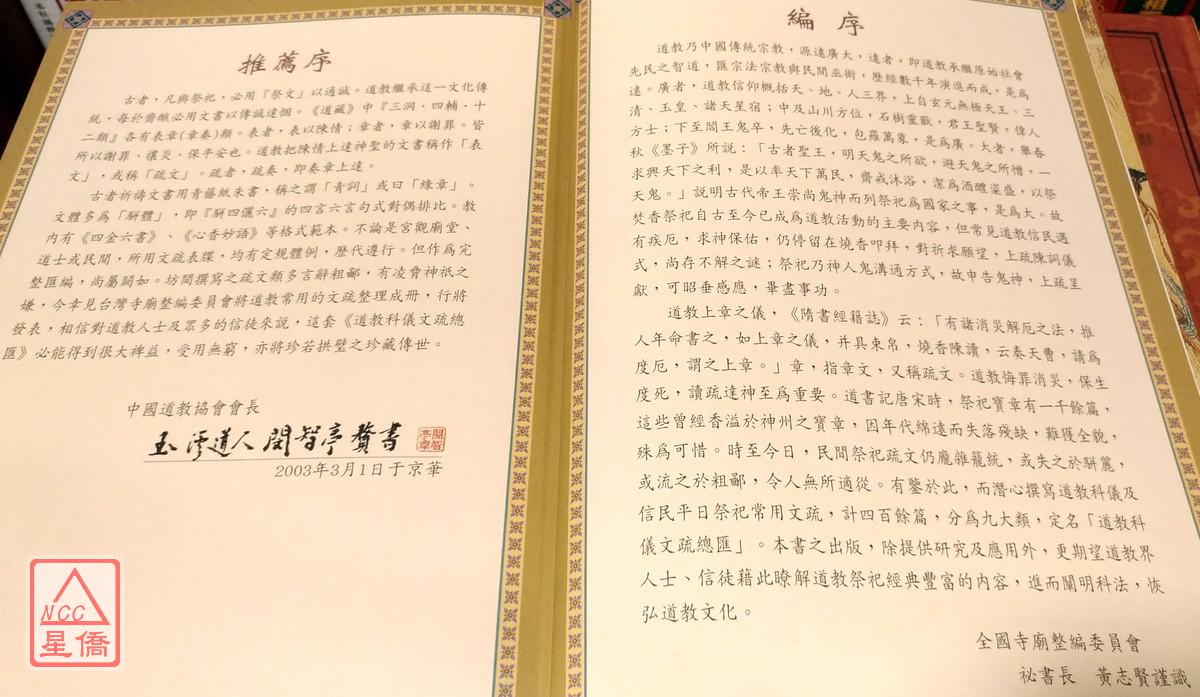 推薦序
古者，凡與祭祀，必用「祭文」以通誠。道教繼承這一文化傳
統，每於齋醮必用文書以傳誠達悃。《道藏》中『三洞、四輔、十
二類』各有表章(章奏)類。表者，表以陳情；章者，章以謝罪。皆
所以謝罪、禳災、保平安也。道教把陳情上達神聖的文書稱作「表
文」，或稱「疏文」。疏者，疏奏，即奏章上達。
古者祈禱文書用青藤紙朱書，稱之謂「青詞」或曰「綠章」。
文體多為「駢體」，即『駢四儷六』的四言六言句式對偶排比。教
內有《四金六書》、《心香妙語》等格式範本。不論是宮觀廟堂、
道士或民間，所用文疏表牒，均有定規體例，歷代遵行。但作為完
整匯編，尚屬闕如。坊間撰寫之疏文類多言辭粗鄙，有凌脅神祇之
嫌，今幸見台灣寺廟整編委員會將道教常用的文疏整理成冊，行將
發表，相信對道教人士及眾多的信徒來說，這套《道教科儀文疏總
匯》必能得到很大裨益，受用無窮，亦將珍若拱璧之珍藏傳世。
中國道教協會會長
玉溪道人 閔智亭 贅書
閔智亭章
2003年3月1日于京華
編序
道教乃中國傳統宗教，源遠廣大，遠者，即道教承繼原始社會
先民之智道，匯宗法宗教與民間巫術，歷經數千年演進而成，是為
遠。廣者，道教信仰概括天、地、人三界，上自玄元無極天王、三
清、玉皇、諸天星宿；中及山川方位，石樹靈獸，君王聖賢，偉人
方士；下至閻王鬼卒，先亡後化，包羅萬象，是為廣。大者，舉春
秋《墨子》所說：「古者聖王，明天鬼之所欲，避天鬼之所憎，一
求興天下之利，是以率天下萬民，齋戒沐浴，潔為酒醴粢盛，以祭
天鬼。」說明古代帝王崇尚鬼神而列祭祀為國家之事，是為大。故
焚香祭祀自古至今已成為道教活動的主要內容，但常見道教信民遇
有疾厄，求神保佑，仍停留在燒香叩拜，對祈求願望，上疏陳詞儀
式，尚存不解之謎；祭祀乃神人鬼溝通方式，故申告鬼神，上疏呈
獻，可昭垂感應，畢盡事功。
道教上章之儀，《隋書經籍誌》云：「有諸消災解厄之法，推
人年命書之，如上章之儀，并具束帛，燒香陳讀，云奏天曹，請為
度厄，謂之上章。」章，指章文，又稱疏文。道教悔罪消災，保生
度死，讀疏達神至為重要。道書記唐宋時，祭祀寶章有一千餘篇，
這些曾經香溢於神州之寶章，因年代綿遠而失落殘缺，難獲全貌，
殊為可惜。時至今日，民間祭祀疏文仍龐雜籠統，或失之於駢麗，
或流之於粗鄙，令人無所適從。有鑒於此，而潛心撰寫道教科儀及
信民平日祭祀常用文疏，計四百餘篇，分為九大類，定名「道教科
儀文疏總匯」。本書之出版，除提供研究及應用外，更期望道教界
人士、信徒藉此瞭解道教祭祀經典豐富的內容，進而闡明科法，恢
弘道教文化。
全國寺廟整編委員會
祕書長 黃志賢謹識
NCC
星僑